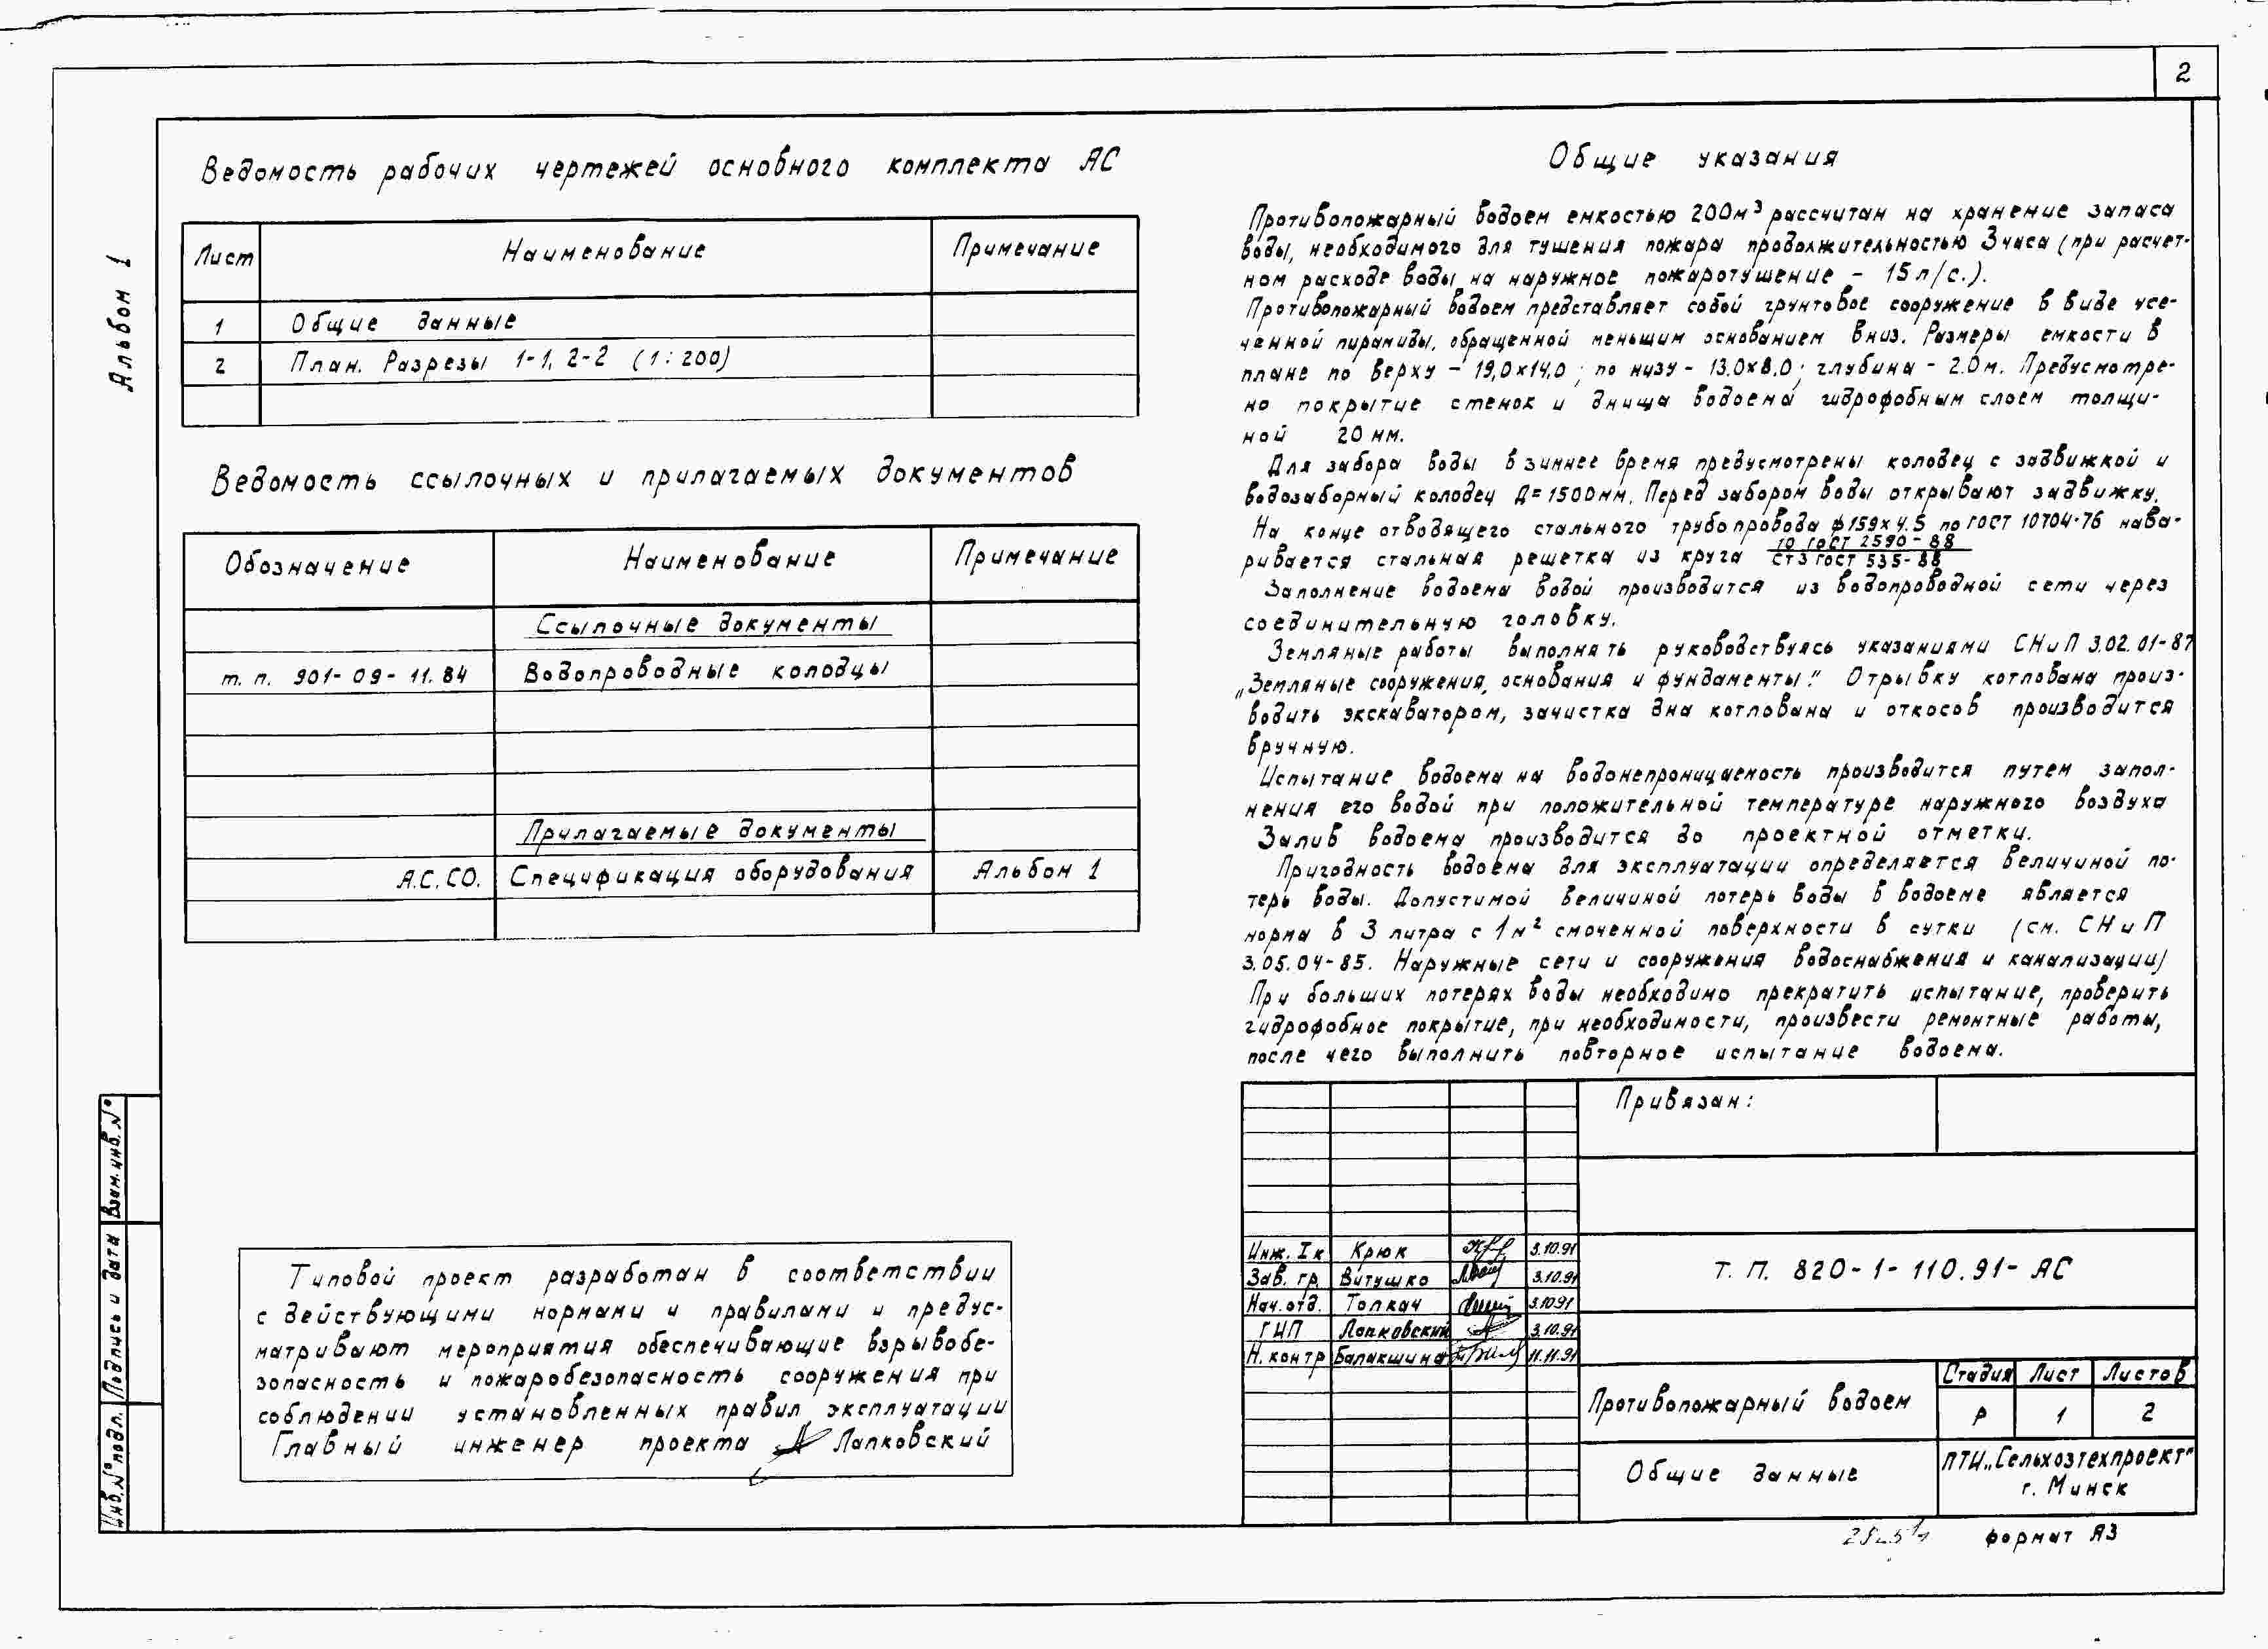 2
Альбом 1
Ведомость рабочих чертежей основного комплекта АС
Лист Наименование Примечание
1 Общие данные
2 План. Разрезы 1-1, 2-2 (1:200)
Ведомость ссылочных и прилагаемых документов
Обозначение Наименование Примечание
Ссылочные документы
т. п. 901-09-11.84 Водопроводные колодцы
Прилагаемые документы
А.С.СО. Спецификация оборудования Альбом 1
Типовой проект разработан в соответствии
с действующими нормами и правилами и предус-
матривают мероприятия обеспечивающие взрывобе-
зопасность и пожаробезопасность сооружения при
соблюдении установленных правил эксплуатации
Главный инженер проекта Лапковский
Общие указания
Противопожарный водоем емкостью 200м³ рассчитан на хранение запаса
воды, необходимого для тушения пожара продолжительностью 3 часа (при расчет-
ном расходе воды на наружное пожаротушение - 15 л/с.).
Противопожарный водоем представляет собой грунтовое сооружение в виде усе-
ченной пирамиды, обращенной меньшим основанием вниз. Размеры емкости в
плане по верху - 19,0×14,0; по низу - 13.0×8.0; глубина - 2.0м. Предусмотре-
но покрытие стенок и днища водоема гидрофобным слоем толщи-
ной 20 мм.
Для забора воды в зимнее время предусмотрены колодец с задвижкой и
водозаборный колодец Д=1500мм. Перед забором воды открывают задвижку.
На конце отводящего стального трубопровода ф159×4.5 по ГОСТ 10704-76 нава-
ривается стальная решетка из круга 10 ГОСТ 2590-88
СТ3 ГОСТ 535-88
Заполнение водоема водой производится из водопроводной сети через
соединительную головку.
Земляные работы выполнять руководствуясь указаниями СНиП 3.02.01-87
„Земляные сооружения, основания и фундаменты." Отрывку котлована произ-
водить экскаватором, зачистка дна котлована и откосов производится
вручную.
Испытание водоема на водонепроницаемость производится путем запол-
нения его водой при положительной температуре наружного воздуха
Залив водоема производится до проектной отметки.
Пригодность водоема для эксплуатации определяется величиной по-
терь воды. Допустимой величиной потерь воды в водоеме является
норма в 3 литра с 1м² смоченной поверхности в сутки (см. СНиП
3.05.04-85. Наружные сети и сооружения водоснабжения и канализации)
При больших потерях воды необходимо прекратить испытание, проверить
гидрофобное покрытие, при необходимости, произвести ремонтные работы,
после чего выполнить повторное испытание водоема.
Привязан:
Инж. Iк Крюк 3.10.91
Зав. гр. Витушко 3.10.91
Нач. отд. Толкач 3.10.91
ГИП Лапковский 3.10.91
Н. контр Балакшина 11.11.91
Т. П. 820-1-110.91-АС
Противопожарный водоем
Стадия Лист Листов
Р 1 2
Общие данные
ПТИ „Сельхозтехпроект"
г. Минск
Взам. инв. №
Подпись и дата
Инв. № подл.
формат А3